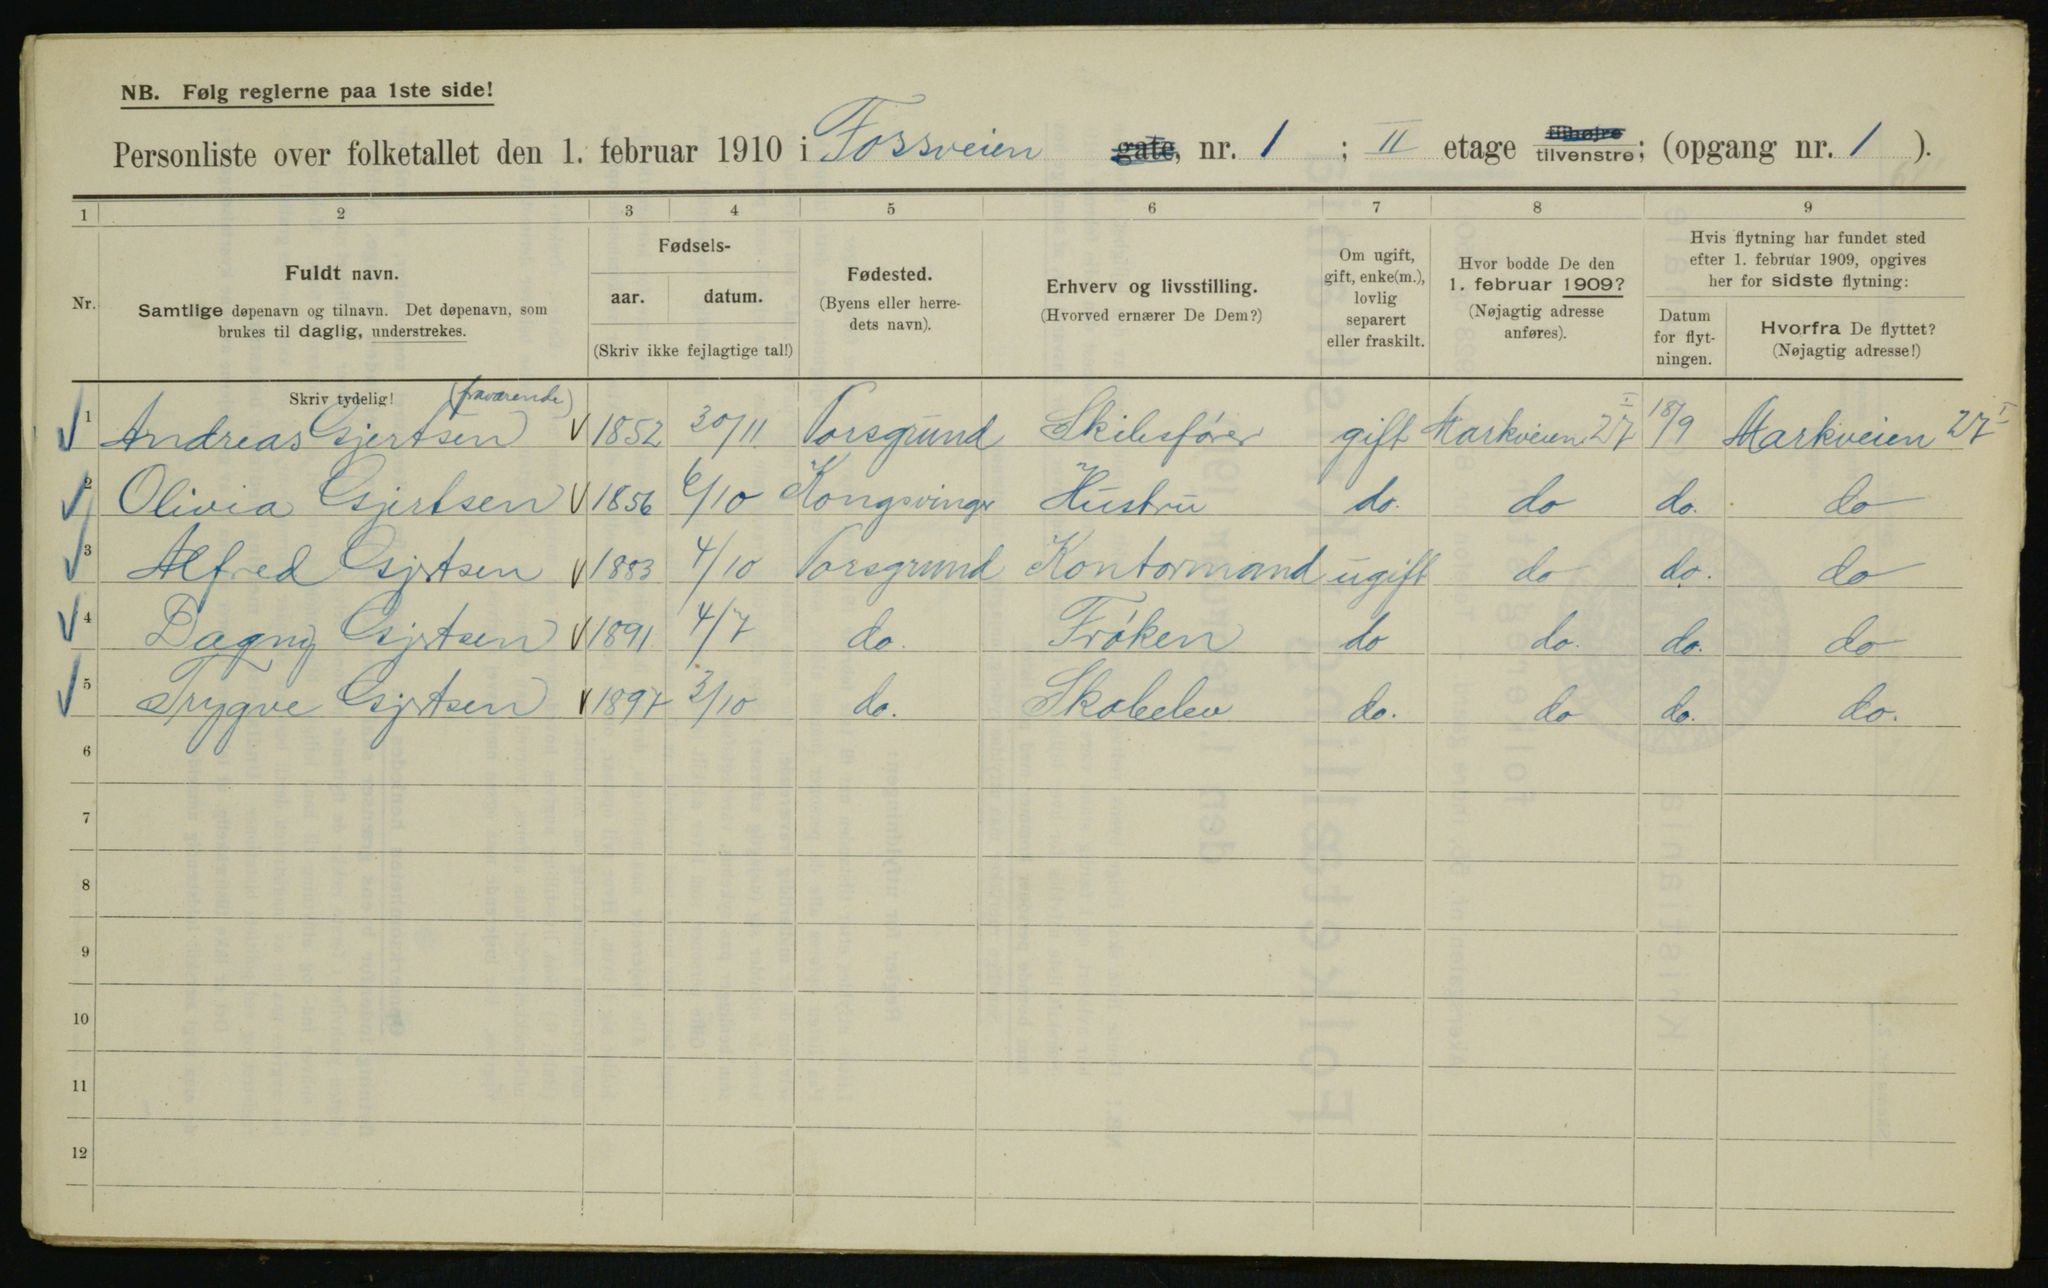 NB. Følg reglerne paa 1ste side!
Personliste over folketallet den 1. februar 1910 i Fossveien gate, nr. 1 ; II etage tilhøjre tilvenstre; (opgang nr. 1 ).
1 2 3 4 5 6 7 8 9
Nr.
Fuldt navn.
Samtlige døpenavn og tilnavn. Det døpenavn, som
brukes til daglig, understrekes.
Fødsels-
aar. datum.
(Skriv ikke fejlagtige tal!)
Fødested.
(Byens eller herre-
dets navn).
Erhverv og livsstilling.
(Hvorved ernærer De Dem?)
Om ugift,
gift, enke(m.),
lovlig
separert
eller fraskilt.
Hvor bodde De den
1. februar 1909?
(Nøjagtig adresse
anføres).
Hvis flytning har fundet sted
efter 1. februar 1909, opgives
her for sidste flytning:
Datum
for flyt-
ningen.
Hvorfra De flyttet?
(Nøjagtig adresse!)
Skriv tydelig! (fraværende)
1 Andreas Gjertsen 1852 30/11 Porsgrund Skibsfører gift Markveien 27 I 18/9 Markveien 27 I
2 Olivia Gjertsen 1856 6/10 Kongsvinger Hustru do. do do. do
3 Alfred Gjrtsen 1883 4/10 Porsgrund Kontormand ugift do do. do
4 Dagny Gjrtsen 1891 4/7 do. Frøken do do. do. do
5 Trygve Gjrtsen 1897 3/10 do. Skoleelev do. do do. do.
6
7
8
9
10
11
12